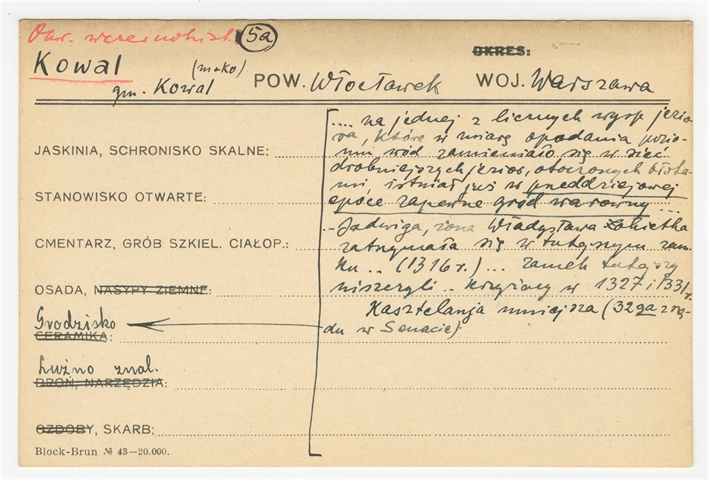 Okr. wczesnohist. 5a OKRES:
Kowal (m+ko)
gm. Kowal POW. Włocławek WOJ. Warszawa
.... na jednej z licznych wysp jezio-
ra, które w miarę opadania pozio-
mu wód zamieniało się w sieć
JASKINIA, SCHRONISKO SKALNE:
drobniejszych jezior, otoczonych błota-
mi, istniał już w przeddziejowej
STANOWISKO OTWARTE:
epoce zapewne gród warowny ...
.. Jadwiga, żona Władysława Łokietka
CMENTARZ, GRÓB SZKIEL. CIAŁOP.:
zatrzymała się w tutejszym zam-
ku .. (1316 r.) ... zamek tutejszy
OSADA, NASYPY ZIEMNE:
niszczyli .. Krzyżacy w 1327 i 1331 r.
Kasztelanja mniejsza (32ga z rzę-
Grodzisko
du w Senacie)
CERAMIKA:
Luźno znal.
BROŃ, NARZĘDZIA:
OZDOBY, SKARB:
Block-Brun № 43–20.000.